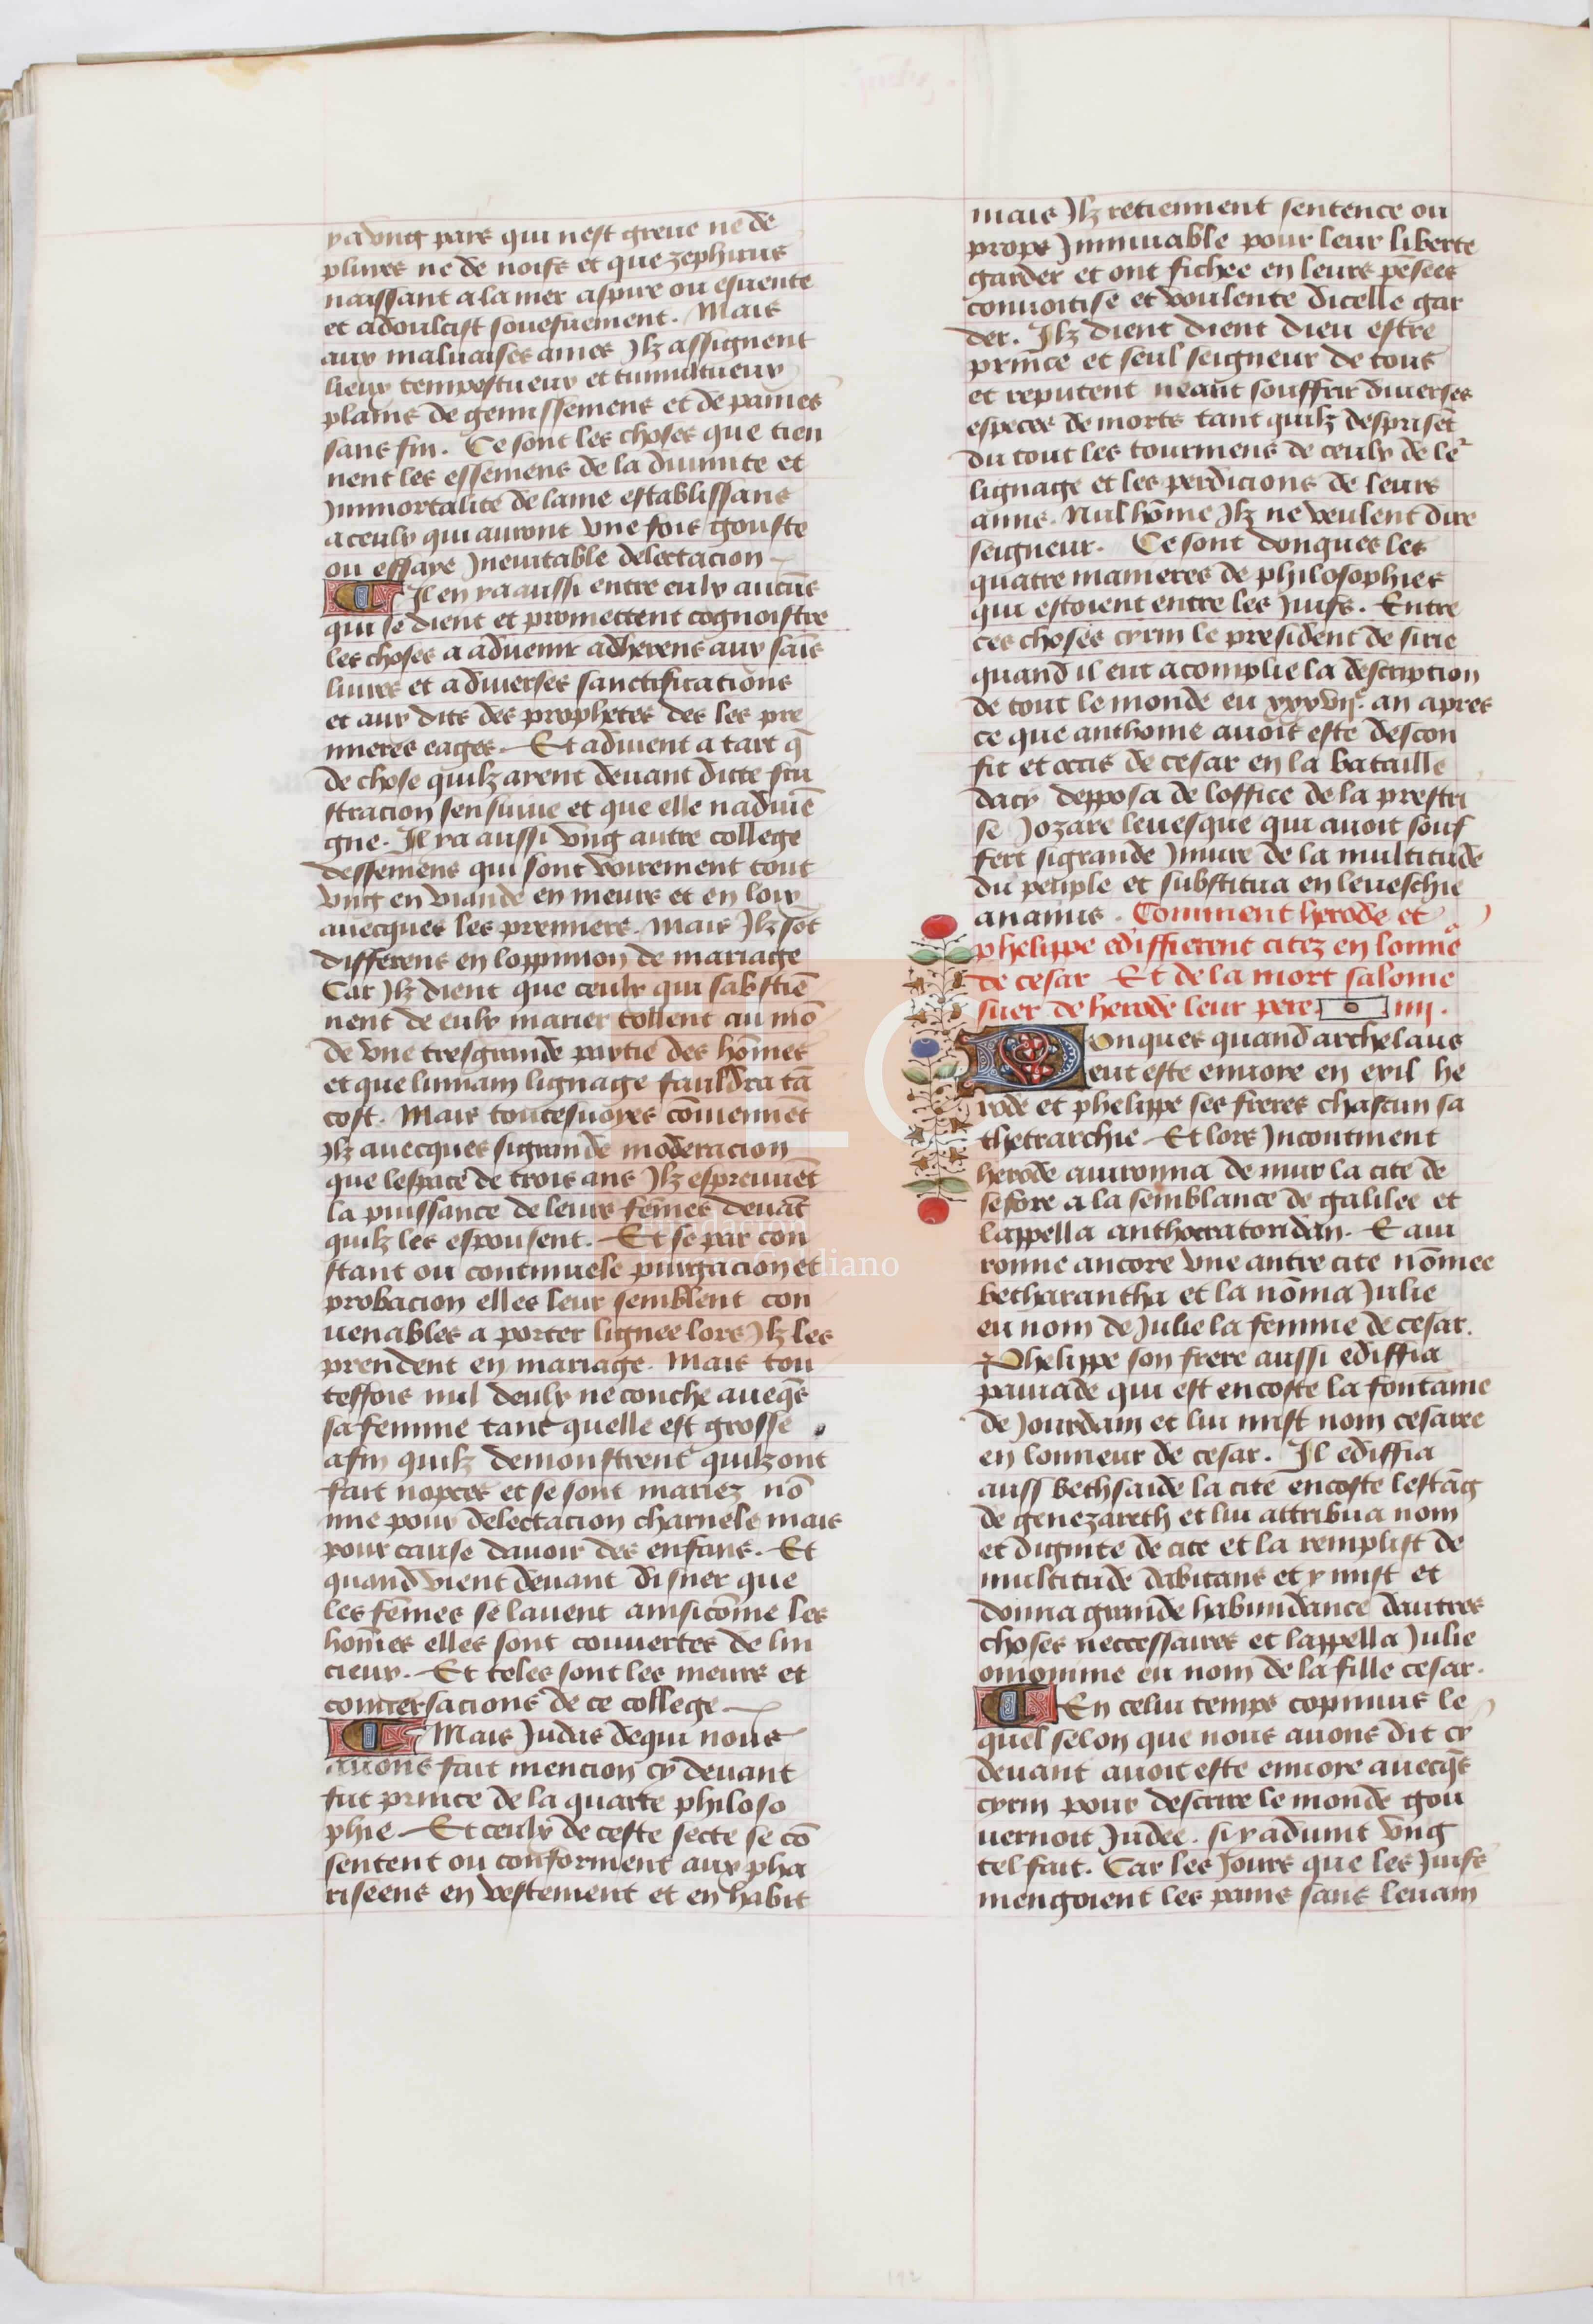 ya vng pais qui nest greue ne de
pluies ne de noifs et que zephirus
naissant a la mer aspire ou esuente
et adoulcist souefuement. Mais
aux maluaises ames Ilz assignent
lieux tempestueux et tumultueux
plains de gemissemens et de paines
sans fin. Ce sont les choses que tien
nent les essemens de la diuinite et
Immortalite de lame establissans
a ceulx qui auront vne fois gouste
ou essaye Ineuitable delectacion
Il en ya aussi entre eulx aucũs
qui se dient et promettent cognoistre
les choses a aduenir adherens aux saĩs
liures et a diuerses sanctifications
et aux dits des prophetes des les pre
mieres eages. Et aduient a tart q̃
de chose quilz aient deuant ditte fru
stracion sensuiue et que elle naduiẽ
gne. Il ya aussi vng autre college
dessemens qui sont voirement tout
vng en viande en meurs et en loix
auecques les premiers. Mais Ilz sõt
differens en loppinion de mariage
Car Ilz dient que ceulx qui sabstiẽ
nent de eulx marier tollent au mõ
de vne tresgrande partie des hõmes
et que lumain lignage fauldra tã
tost. Mais toutesuoyes cõuiennẽt
Ilz auecques si grande moderacion
que lespace de trois ans Ilz espreuuẽt
la puissance de leurs fẽmes deuãt
quilz les espousent. Et se par con
stant ou continuele purgacion et
probacion elles leur semblent con
uenables a porter lignee lors Ilz les
prendent en mariage. Mais tou
teffois nul deulx ne couche aueq̃s
sa femme tant quelle est grosse
afin quilz demonstrent quilz ont
fait nopces et se sont mariez nõ
mie pour delectacion charnele mais
pour cause dauoir des enfans. Et
quand vient deuant disner que
les fẽmes se lauent ainsi cõme les
hom̃es elles sont couuertes de lin
cieux. Et teles sont les meurs et
conuersacions de ce college
Mais Judas de qui nous
auons fait mencion cy deuant
fut prince de la quarte philoso
phie. Et ceulx de ceste secte se cõ
sentent ou conforment aux pha
riseens en vestement et en habit
mais Ilz retiennent sentence ou
propos Immuable pour leur liberte
garder et ont fichee en leurs pẽsees
conuoitise et voulente dicelle gar
der. Ilz dient dient dieu estre
prince et seul seigneur de tous
et reputent neant souffrir diuerses
especes de morts tant quilz desprisẽt
du tout les tourmens de ceulx de le᷑
lignage et les perdicions de leurs
amis. Nul hõme Ilz ne veulent dire
seigneur. Ce sont donques les
quatre manieres de philosophies
qui estoient entre les Juifs. Entre
ces choses cyrin le president de sirie
quand il eut acomplie la description
de tout le monde en xxxvijᵉ. an apres
ce que anthoine auoit este descon
fit et occis de cesar en la bataille
dacy depposa de loffice de la prestri
se Jozare leuesque qui auoit souf
fert si grande Iniure de la multitude
du peuple et substitua en leueschie
ananus. Comment herode et
phelippe edifficerent citez en lonne᷑
de cesar Et de la mort salome
suer de herode leur pere iiij.
Donques quand archelaus
eut este enuoie en exil he
rode et phelippe ses freres chascun sa
thetrarchie. Et lors Incontinent
herode auironna de mur la cite de
sefore a la semblance de galilee et
lappella anthocratoridan. Eaui
ronne ancore vne autre cite nõmee
betharantha et la nõma Julie
en nom de Julie la femme de cesar.
Phelippe son frere aussi ediffia
paniade qui est encoste la fontaine
de Jourdain et lui mist nom cesaree
en lonneur de cesar. Il ediffia
auss bethsaide la cite encoste lestãg
de genezareth et lui attribua nom
et dignite de cite et la remplist de
multitude dabitans et y mist et
donna grande habundance dautres
choses neccessaires et lappella Julie
omonime en nom de la fille cesar.
En celui temps coponius le
quel selon que nous auons dit cy
deuant auoit este enuoie auecq̃s
cyrin pour descrire le monde gou
uernoit Judee. si y aduint vng
tel fait. Car les Jours que les Juifs
mengoient les pains sans leuain
192